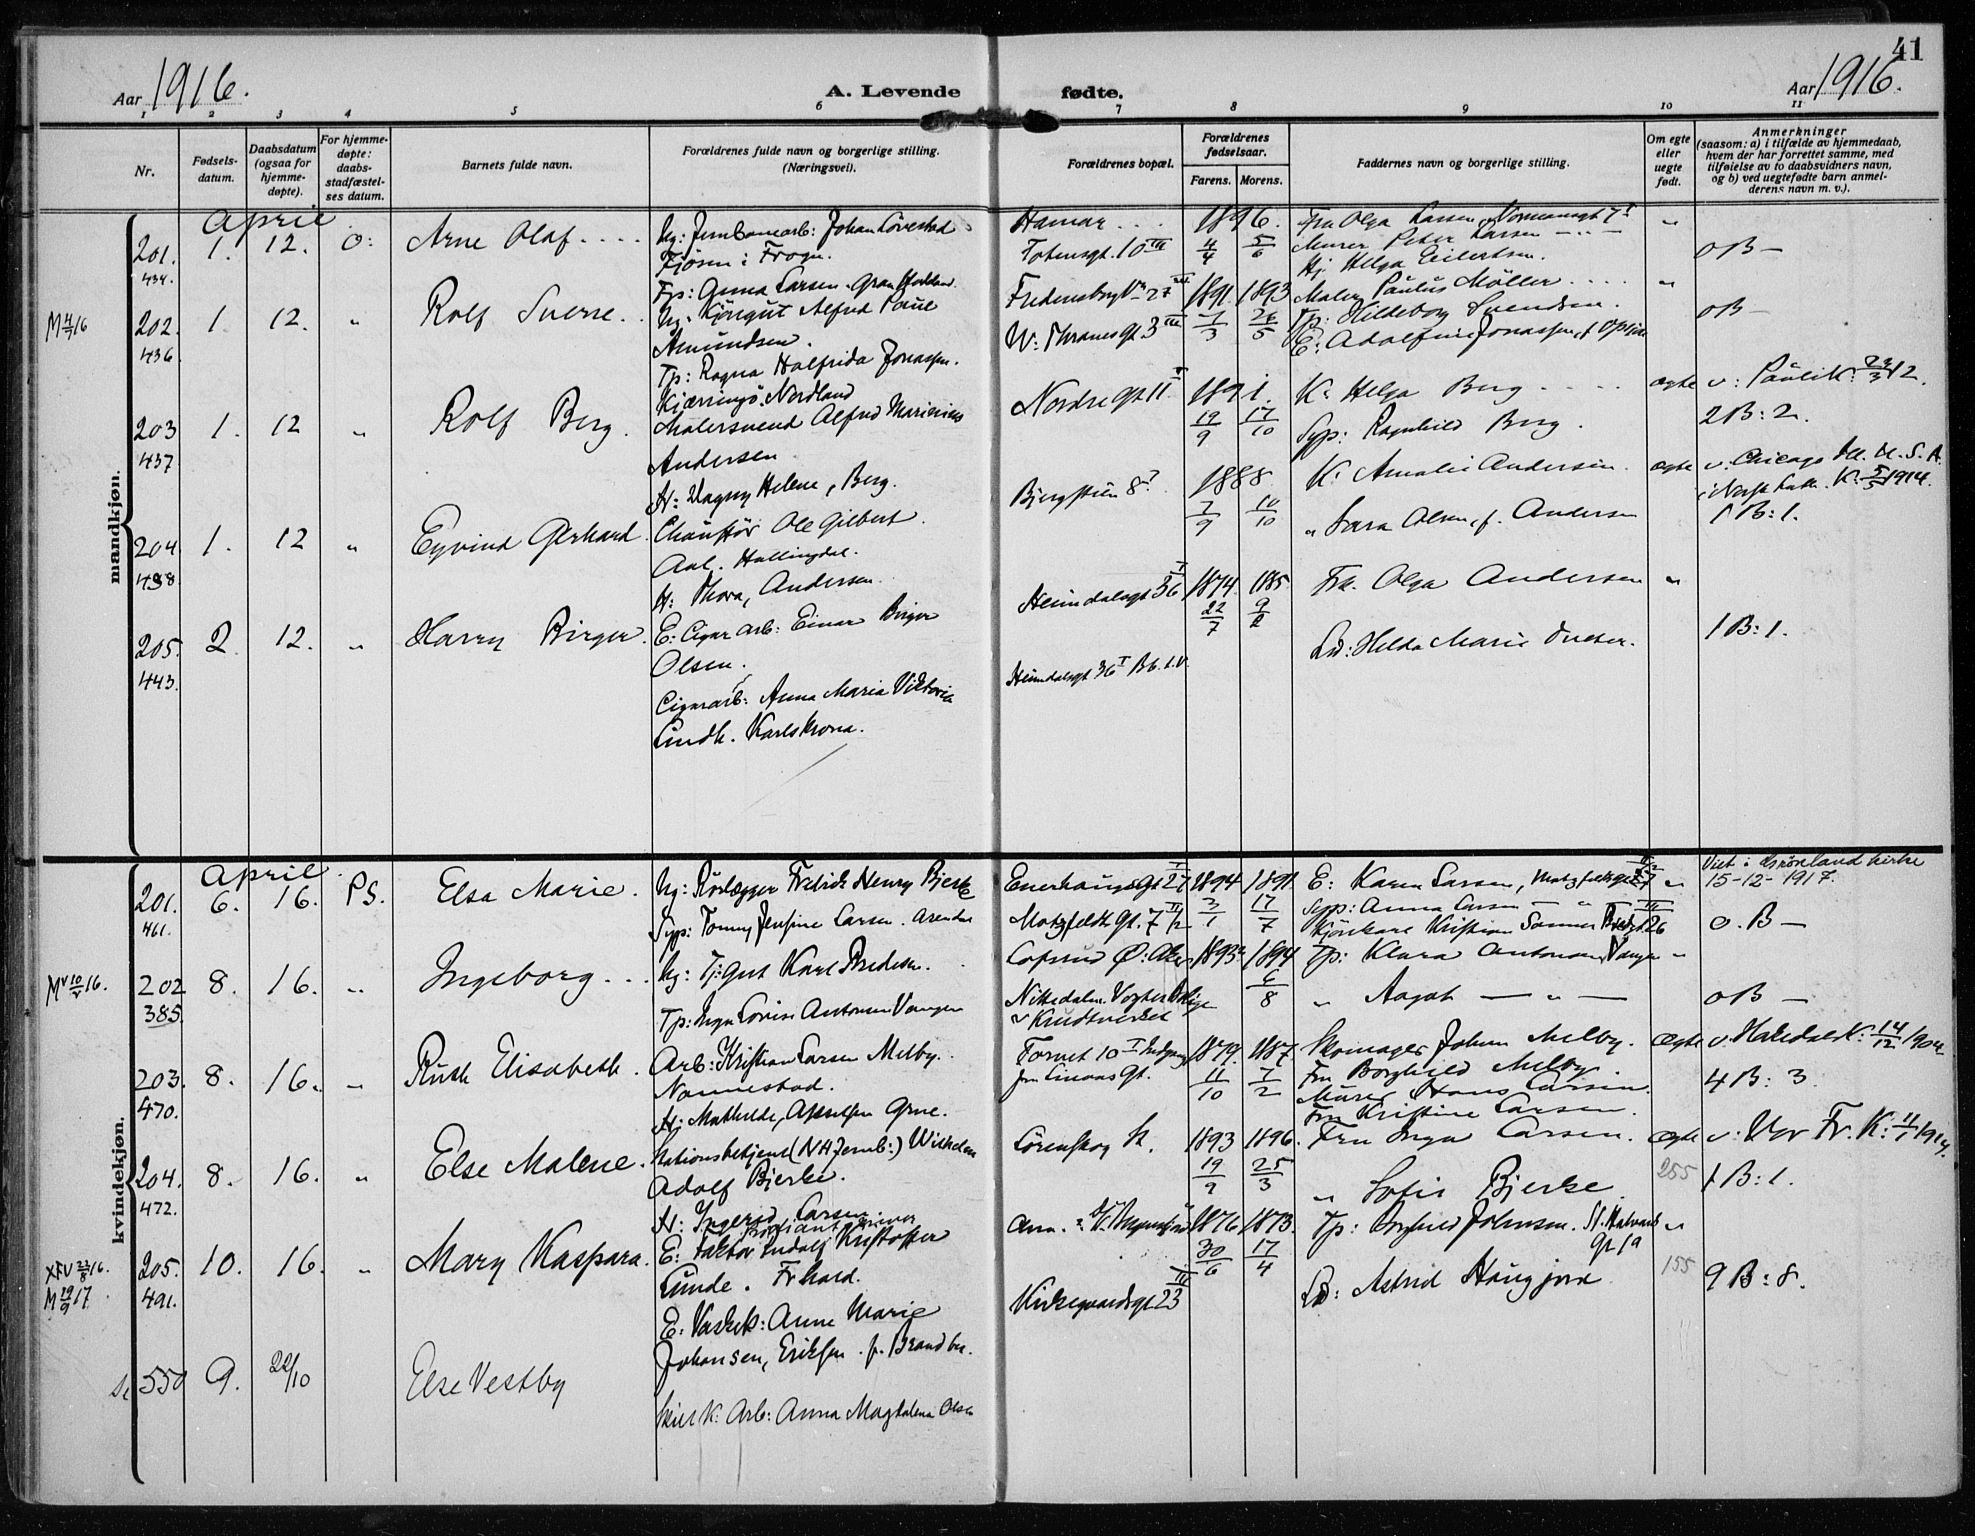 41
Aar 1916.
A. Levende fødte.
Aar 1916.
1 2 3 4 5 6 7 8 9 10 11
Nr.
Fødsels-
datum.
Daabsdatum
(ogsaa for
hjemme-
døpte).
For hjemme-
døpte:
daabs-
stadfæstel-
ses datum.
Barnets fulde navn.
Forældrenes fulde navn og borgerlige stilling.
(Næringsvei).
Forældrenes bopæl.
Forældrenes
fødselsaar.
Farens. Morens.
Faddernes navn og borgerlige stilling.
Om egte
eller
uegte
født.
Anmerkninger
(saasom: a) i tilfælde av hjemmedaab,
hvem der har forrettet samme, med
tilføielse av to daabsvidners navn,
og b) ved uegtefødte barn anmel-
derens navn m. v.).
mandkjøn.
April
201.
434.
1. 12. O:
Arne Olaf
Ug: Jernbanearb: Johan Lövestad
Fjosen i Frogn.
Fp: Gunna Larsen. Gran
Hamar
Totensgt. 10 III
1896.
4/4 5/6
Fru Olga Larsen, Normannsgt 75
Murer Peter Larsen
Hj. Helga Eilertsen.
"
0B —
M 4/7 16
202.
436.
1 12. "
Rolf Sverre.
Ug: Kjöregut Alfred Paul
Amundsen.
Tp: Ragna Halfrida Jonassen.
Kjæringö. Nordland
Fredensborgv. 27
W. Thranesgt. 3 III
1891. 1893
7/3 24/5
Maler Paulus Möller
Tp: Hildeborg Svendsen.
E: Adolfine Jonassen,
"
0B —
203
437
1. 12 "
Rolf Berg.
Malersvend Alfred Marinius
Andersen
H: Dagny Helene, Berg.
Nordregt 11 I
1891.
19/9 17/10
K. Helga Berg
Syp: Ragnhild Berg.
ægte
v: Pauli K: 23/3 12.
2B: 2.
204
438.
1. 12 "
Eyvind Gerhard.
Chauffør Ole Gilbert
Aal. Hallingdal.
H: Thora, Andersen
Bjergstien 8 I
1888.
7/9 14/10
K. Amalie Andersen.
" Sara Olsen, f. Andersen
ægte
v. Chicago Ill. U. S. A.
i Norsk Luth. K. 5/5 1914.
1 B: 1.
205.
443.
2. 12. "
Harry Birger.
E: Cigararb: Einar Birger
Olsen.
Cigararb: Anna Maria Viktoria
Lindh. Karlskrona.
Heimdalsgt 36 I
Heimdalsgt 36 I B6. 1. V.
1874. 1885
22/7 9/2
Frk. Olga Andersen
Ld: Hilda Marie
"
1 B: 1.
kvindekjøn.
April.
201.
461.
6. 16. P.S.
Elsa Marie.
Ug: Rörlægger Fredrik Henry Bjerke
Syp: Tomny Jensine Larsen. Arendal
Enerhaugsgt 27 I
Motzfeldts Gt. 7 II
1894 1891
3/1 17/7
E: Karen Larsen, Motzfeldtsgt 27
Syp: Anna Larsen — " —
Kjörekarl Kristian Sommer 26
"
Viet i Grönland kirke
15-12-1917.
0. B —
M 10/V 16.
202
385.
8. 16. "
Ingeborg
Ug: Tj:gut Karl Bredesen.
Tp: Inga Lovise Antonsen Vangen
Lofsrud Ø: Aker
Nittedalen.
v Krudtverket
1893. 1894
6/8
Tp: Klara Antonsen Vangen
" Aagot — " —
"
0B —
203.
470.
8. 16. "
Ruth Elisabeth.
Arb: Kristian Larsen Melby.
Nannestad.
H: Mathilde, Arnesen
Torvet 10 I Indgang
fra Linaaes Gt.
1879. 1887.
11/10 7/2
Skomager Johan Melby.
Fru Borghild Melby.
Murer Hans Larsen
Fru Kristine Larsen.
ægte
v. Hakedal K: 14/12 1904.
4 B: 3.
204.
472.
8. 16. "
Else Malene.
Stationsbetjent (NH Jernb:) Wilhelm
Adolf Bjerke.
H: Ingerid Larsen
Lörenskog St.
1893 1896.
19/9 25/3
Fru Inga Larsen.
" Sofie Bjerke
ægte
255
v: Vor Fr. K: 4/1 1914.
1 B: 1.
XFV 23/8 16.
M 19/9 17
205.
491.
10. 16. "
Mary Kaspara.
E: Faktor Ludolf Kristoffer
Lunde. Frhald.
E: Vaskek: Anne Marie
Johansen, Eriksen. f. Brandbu.
Kirkegaardsgt 23 IV
1876 1873.
30/6 17/4
Tp: Borghild Johnsen. St. Halvards
Gt 1a
Ld: Astrid Haugjord
"
155
9 B: 8.
550
9. 22/10
Else Vestby
Skiet K: Arb: Anna Magdalena Olsen